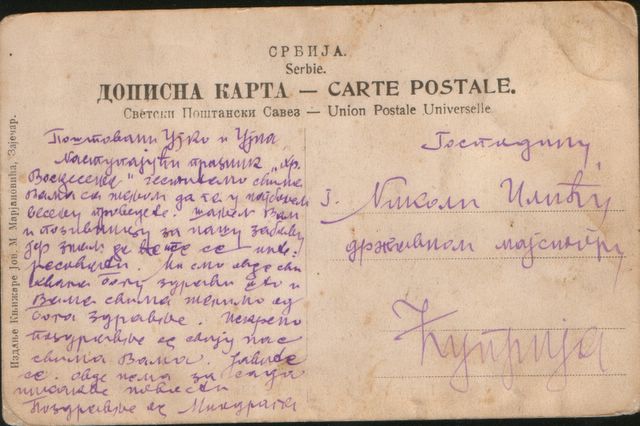 СРБИЈА.
Serbie.
ДОПИСНА КАРТА — CARTE POSTALE.
Светски Поштански Савез — Union Postale Universelle
Издање Књижаре Јов. М. Марјановића, Зајечар.
Поштовани Ујко и Ујна
Наступајући празник „Хр.
Воскресење" честитамо свима
Вама са жељом да га у најбољем
весељу проведете.
и позивницу за нашу забаву
јер знам да
Ми смо овде сви
хвала богу здрави што и
Вама свима желимо од
бога здравље. Искрено
поздравље од свију нас
свима Вама. Јавите
се. овде нема за сада
никакве
Поздравље од
Господину
г. Николи Илићу
државном
Ћуприја